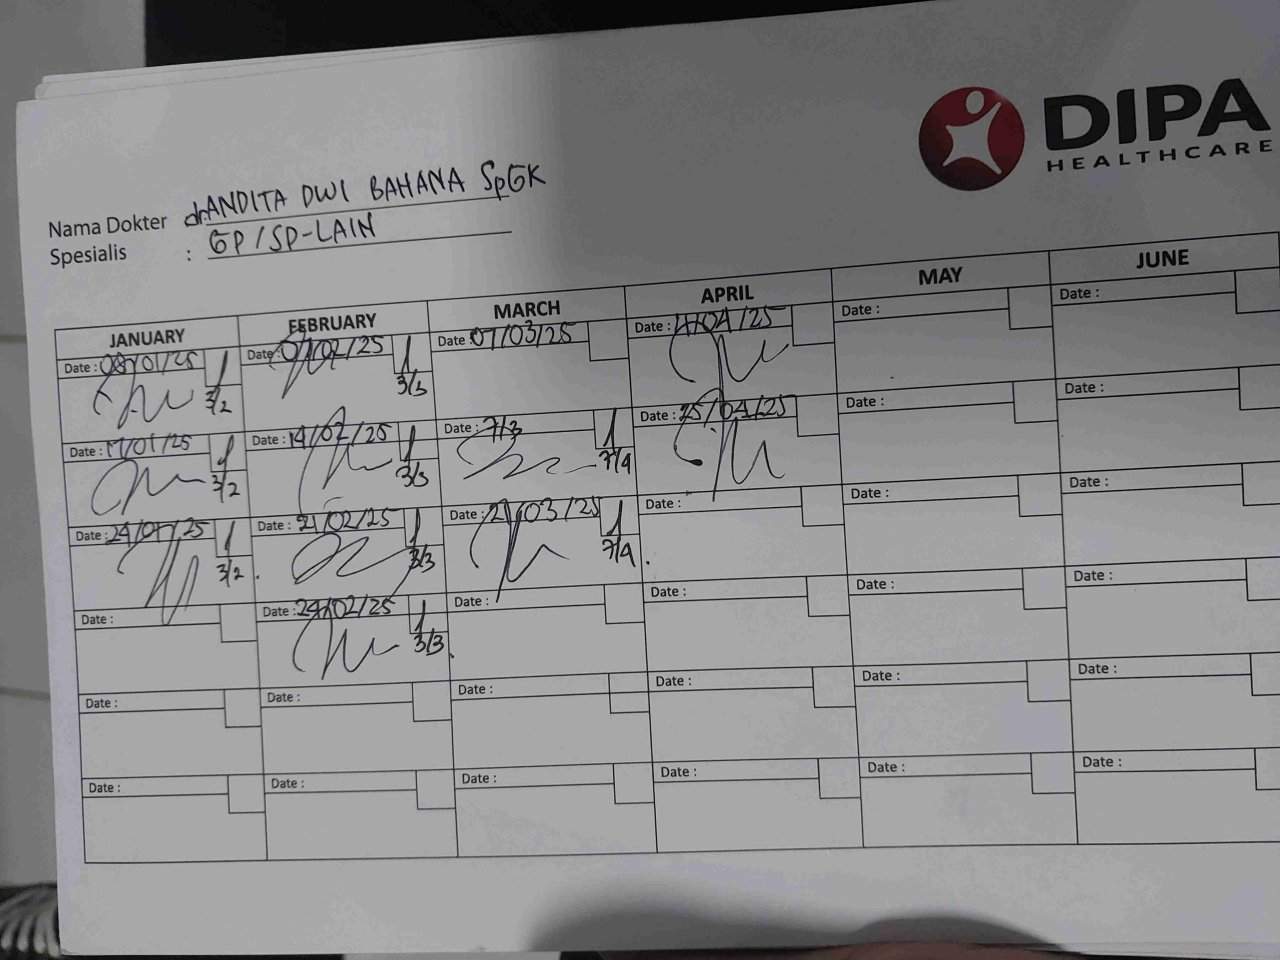 DIPA
HEALTHCARE
Nama Dokter dr. ANDITA DWI BAHANA SpGK
Spesialis : GP / SP-LAIN
JANUARY FEBRUARY MARCH APRIL MAY JUNE
Date : 08/01/25 Date : 07/02/25 Date : 07/03/25 Date : 11/04/25 Date : Date :
3/2 3/3
Date : 17/01/25 Date : 14/02/25 Date : 7/3 Date : 25/04/25 Date : Date :
3/2 3/3 7/4
Date : 24/01/25 Date : 21/02/25 Date : 21/03/25 Date : Date : Date :
3/2 3/3 7/4
Date : Date : 24/02/25 Date : Date : Date : Date :
3/3
Date : Date : Date : Date : Date : Date :
Date : Date : Date : Date : Date : Date :